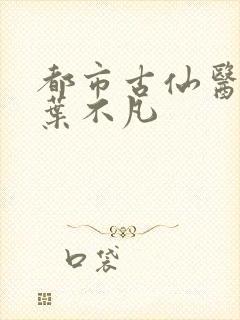 都市古仙醫
葉不凡
口袋